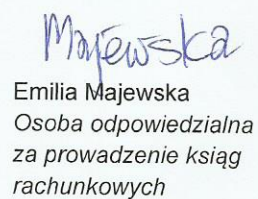 Majewska
Emilia Majewska
Osoba odpowiedzialna
za prowadzenie ksiąg
rachunkowych